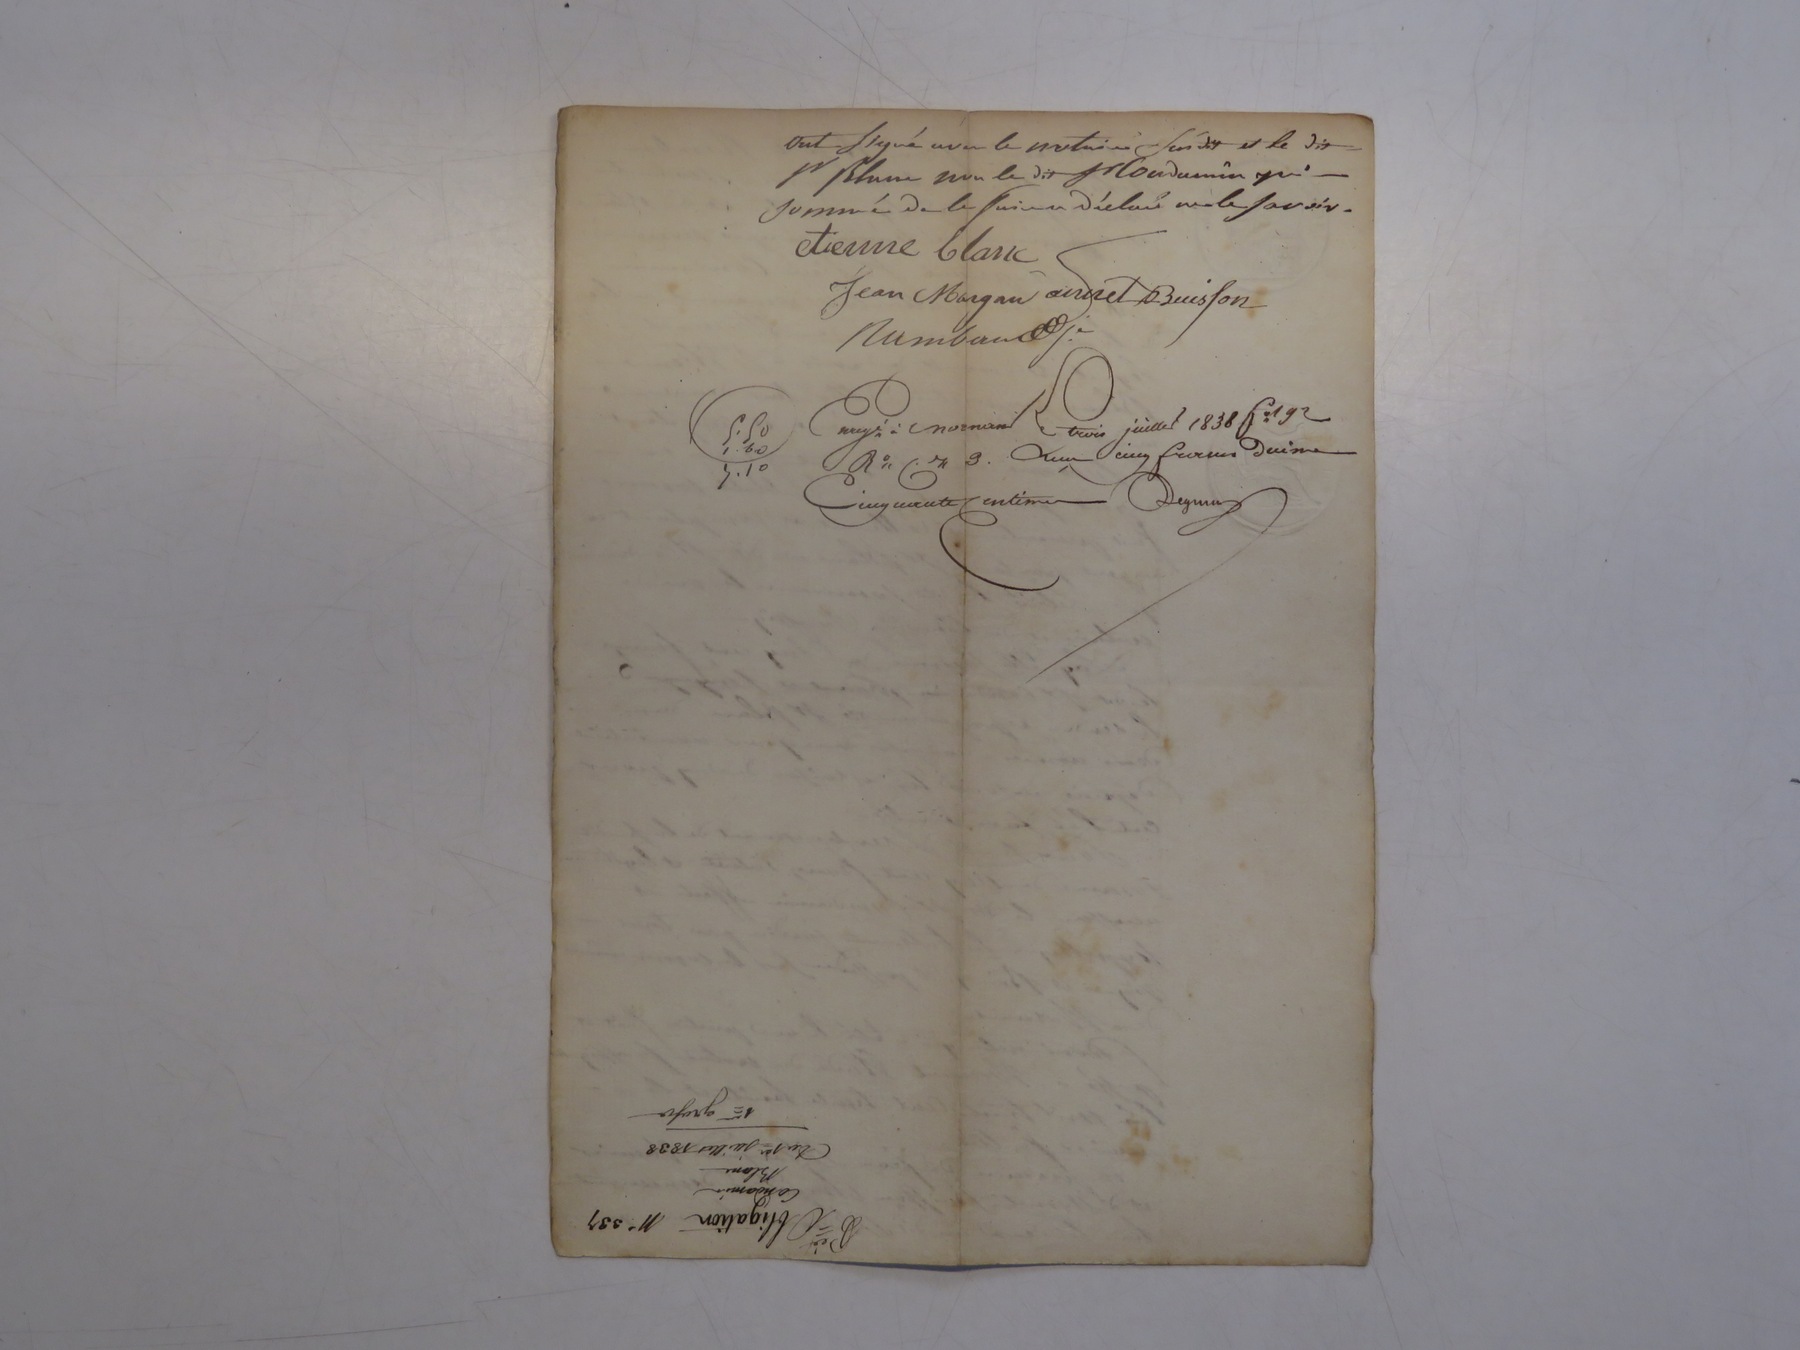 ont signé avec le notaire susdit et le dit
Sr Blanc non le dit Condamin qui
sommé de le faire a déclaré ne le savoir.
etienne blanc
Jean Margan Buisson
Rambaud
5.50
1.60
7.10
Enregé à mornant le trois juillet 1838 fo 192
Ro c. 3. Reçu cinq francs Dixme
Cinquante centimes
Obligation No 337
Condamin
Blanc
Du 1er juillet 1838
1re grosse